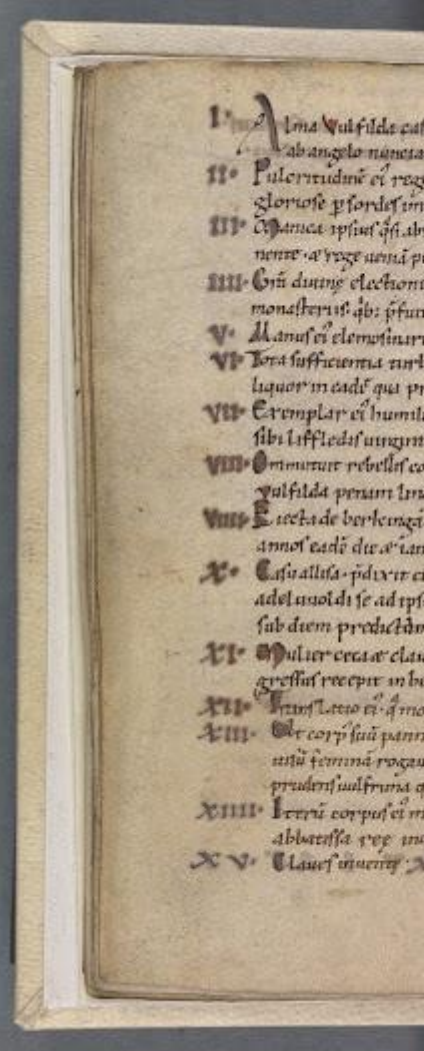 I. Alma Vulfilda caſ
ab angelo nuncia
II. Pulcritudinē ei᷒ reg
glorioſe p̱ ſordeſ
III. Manica ipſiuſ q̄ſi ab
nente · & rege ueniā p
IIII. Cū diuinę election
monaſteriiſ qb; p̄fuit
V. Manuſ ei᷒ elemoſinari
VI. Tota ſufficientia turb
liquor in eadē qua pr
VII. Exemplar ei᷒ humil
ſibi lifflediſ uirgini
VIII. Omittit rebelliſ co
pulfilda penam
VIIII. Eiecta de berkingā
annoſ eadē die & ian
X. Caſu alliſa · p̄dixit
adeluuoldi ſe ad ipſ
ſub diem predictū
XI. Mulier ceca & clau
greſſuſ recepit in
XII. Tranſlatio ei᷒ · q̄ mo
XIII. Vt corp᷒ ſuū pann
feminā rogau
prudenſ uulfruna
XIIII. Iterū corpuſ ei᷒
abbatiſſa
XV. Claueſ inuente ·